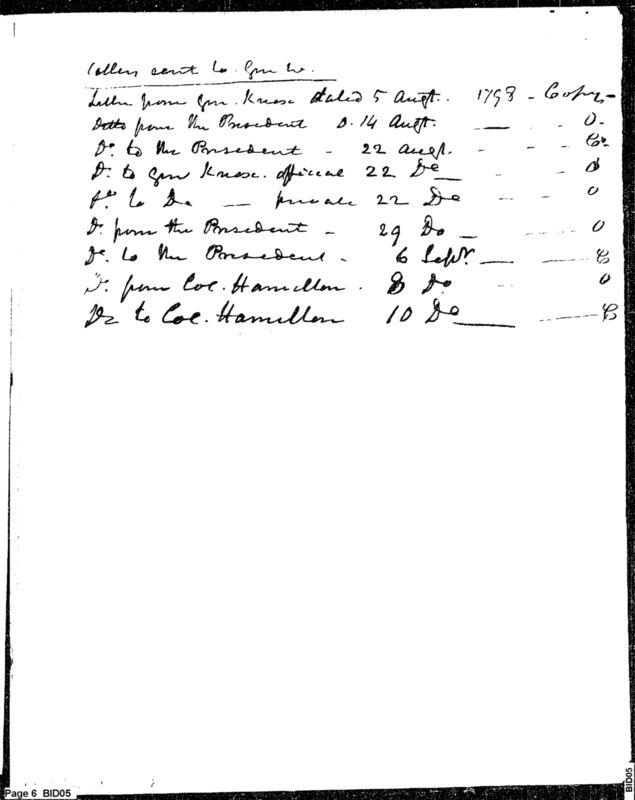 Letters sent to Gen W.
Letter from Gen. Knox dated 5 Augt. 1798 - Copy -
Ditto from the President D. 14 Augt. — — O.
Do. to the President - 22 Augt. - - — Co.
Do. to Gen Knox. official 22 Do — - — O
Do. to Do — private 22 Do - - O
Do. from the President - 29 Do — — O
Do. to the President - 6 Septr. — — C
Do. from Col. Hamilton. 8 Do. — O
Do to Col. Hamilton 10 Do — — C
Page 6 BID05
BID05